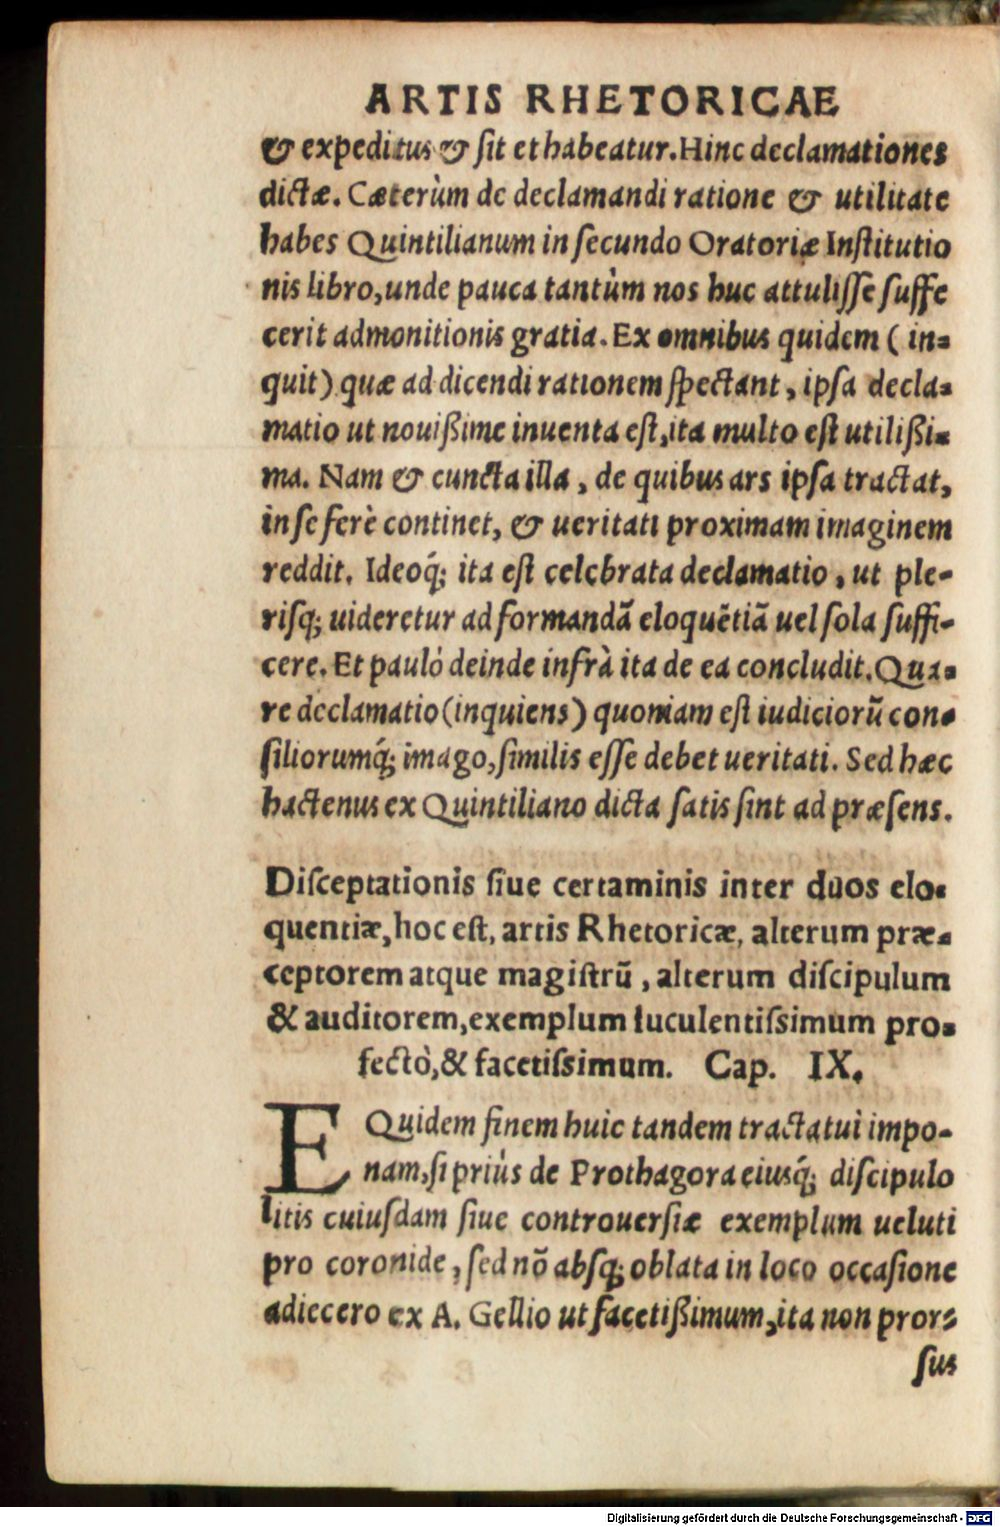 ARTIS RHETORICAE
& expeditus & sit et habeatur. Hinc declamationes
dictæ. Cæterùm de declamandi ratione & utilitate
habes Quintilianum in secundo Oratoriæ Institutio
nis libro, unde pauca tantùm nos huc attulisse suffe
cerit admonitionis gratia. Ex omnibus quidem ( in-
quit) quæ ad dicendi rationem spectant, ipsa decla-
matio ut nouißime inuenta est, ita multo est utilißi-
ma. Nam & cuncta illa, de quibus ars ipsa tractat,
in se ferè continet, & ueritati proximam imaginem
reddit. Ideoq́; ita est celebrata declamatio, ut ple-
risq; uideretur ad formandã eloquẽtiã uel sola suffi-
cere. Et paulò deinde infrà ita de ea concludit. Qua-
re declamatio (inquiens) quoniam est iudiciorũ con-
siliorumq́; imago, similis esse debet ueritati. Sed hæc
hactenus ex Quintiliano dicta satis sint ad præsens.
Disceptationis siue certaminis inter duos elo-
quentiæ, hoc est, artis Rhetoricæ, alterum præ-
ceptorem atque magistrũ, alterum discipulum
& auditorem, exemplum luculentissimum pro-
fectò, & facetissimum. Cap. IX.
EQuidem finem huic tandem tractatui impo-
nam, si priùs de Prothagora eiusq́; discipulo
litis cuiusdam siue controuersiæ exemplum ueluti
pro coronide, sed nõ absq; oblata in loco occasione
adiecero ex A. Gellio ut facetißimum, ita non pror-
sus
Digitalisierung gefördert durch die Deutsche Forschungsgemeinschaft - DFG